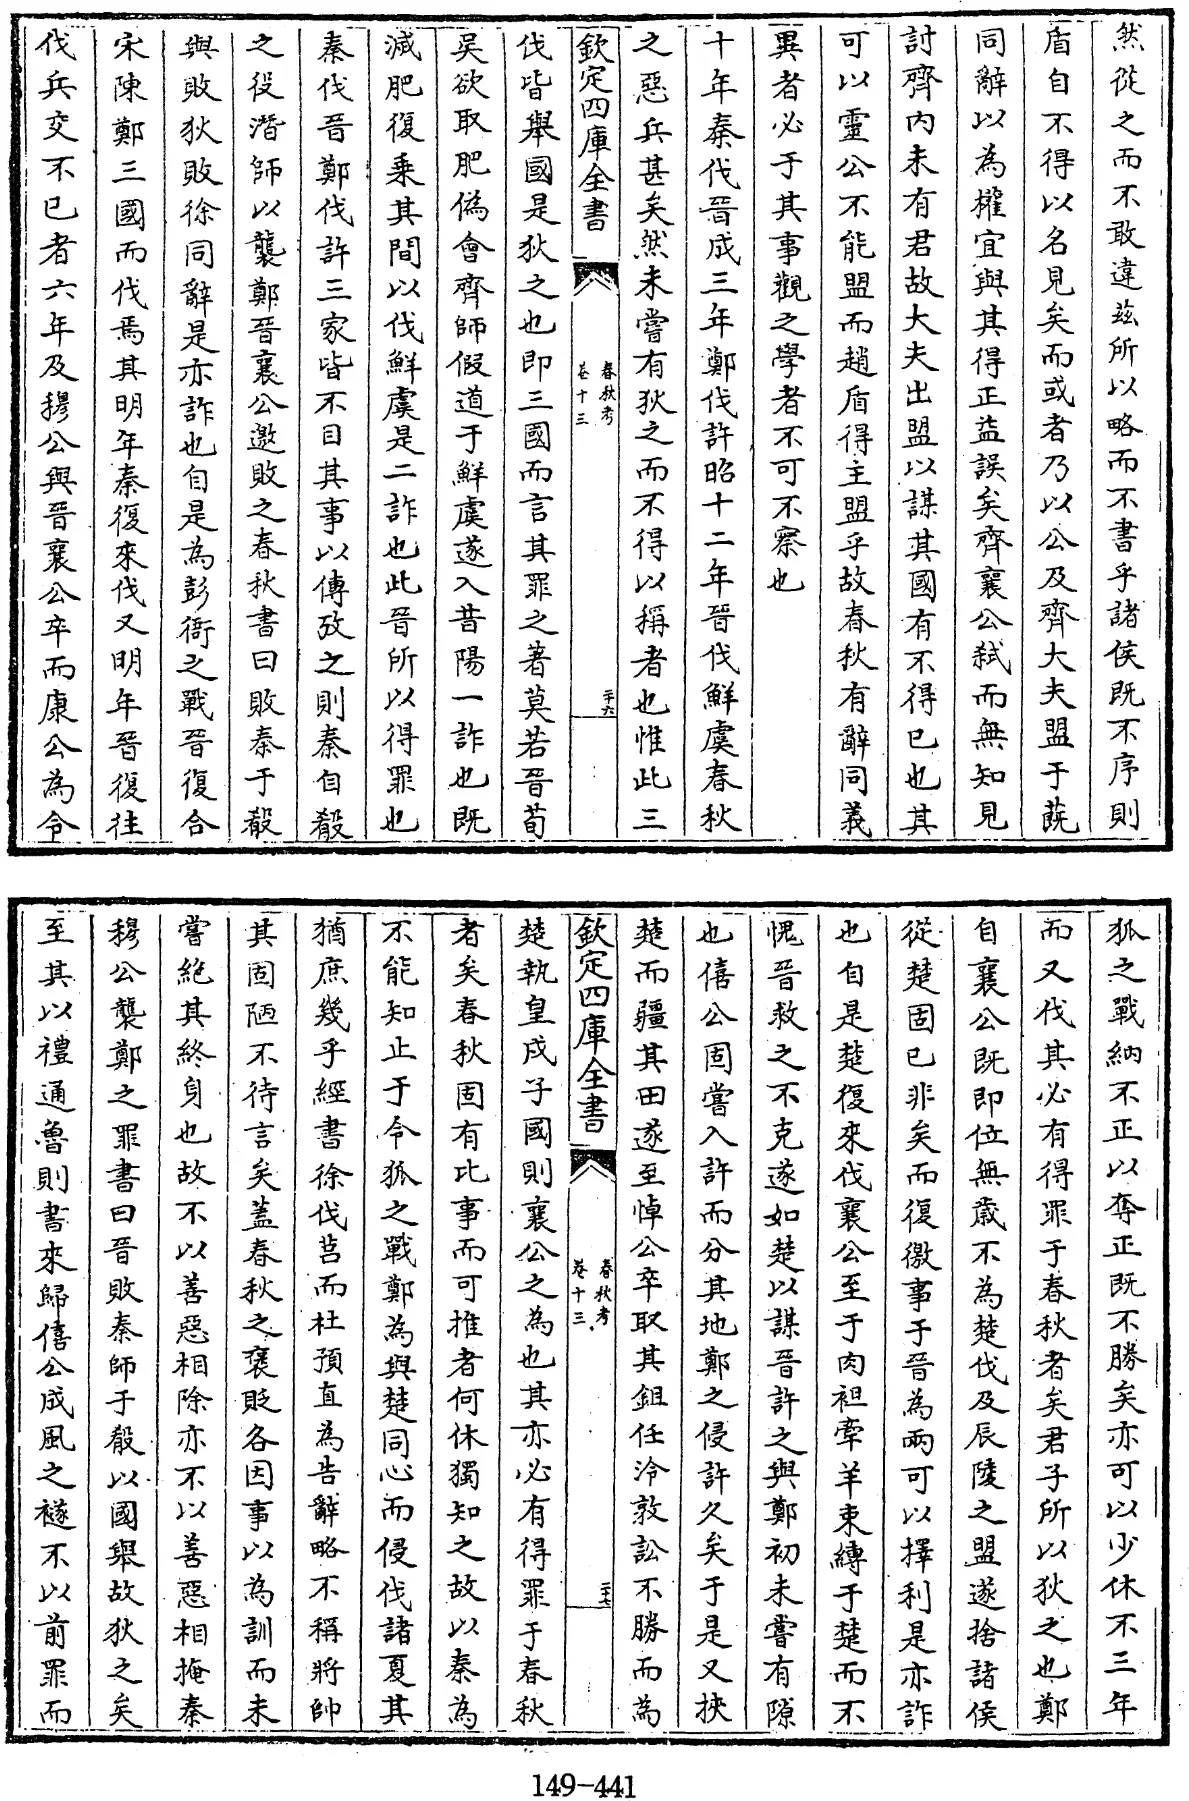 然從之而不敢違兹所以略而不書乎諸侯既不序則
盾自不得以名見矣而或者乃以公及齊大夫盟于蔇
同辭以為權宜與其得正益誤矣齊襄公弑而無知見
討齊内未有君故大夫出盟以謀其國有不得已也其
可以靈公不能盟而趙盾得主盟乎故春秋有辭同義
異者必于其事觀之學者不可不察也
十年秦伐晉成三年鄭伐許昭十二年晉伐鮮虞春秋
之惡兵甚矣然未嘗有狄之而不得以稱者也惟此三
欽定四庫全書
春秋考
卷十三
二十六
伐皆舉國是狄之也即三國而言其罪之著莫若晉荀
吳欲取肥偽會齊師假道于鮮虞遂入昔陽一詐也既
滅肥復乗其間以伐鮮虞是二詐也此晉所以得罪也
秦伐晉鄭伐許三家皆不目其事以傳攷之則秦自殽
之役潛師以襲鄭晉襄公邀敗之春秋書曰敗秦于殽
與敗狄敗徐同辭是亦詐也自是為彭衙之戰晉復合
宋陳鄭三國而伐焉其明年秦復來伐又明年晉復往
伐兵交不已者六年及穆公與晉襄公卒而康公為令
狐之戰納不正以奪正既不勝矣亦可以少休不三年
而又伐其必有得罪于春秋者矣君子所以狄之也鄭
自襄公既即位無歳不為楚伐及辰陵之盟遂捨諸侯
從楚固已非矣而復徼事于晉為兩可以擇利是亦詐
也自是楚復來伐襄公至于肉袒牽羊束縛于楚而不
愧晉救之不克遂如楚以謀晉許之與鄭初未嘗有隙
也僖公固嘗入許而分其地鄭之侵許久矣于是又挾
楚而疆其田遂至悼公卒取其鉏任泠敦訟不勝而為
欽定四庫全書
春秋考
卷十三
二十七
楚執皇戌子國則襄公之為也其亦必有得罪于春秋
者矣春秋固有比事而可推者何休獨知之故以秦為
不能知止于令狐之戰鄭為與楚同心而侵伐諸夏其
猶庶幾乎經書徐伐莒而杜預直為告辭略不稱將帥
其固陋不待言矣蓋春秋之襃貶各因事以為訓而未
嘗絶其終身也故不以善惡相除亦不以善惡相掩秦
穆公襲鄭之罪書曰晉敗秦師于殽以國舉故狄之矣
至其以禮通魯則書來歸僖公成風之襚不以前罪而
149-441